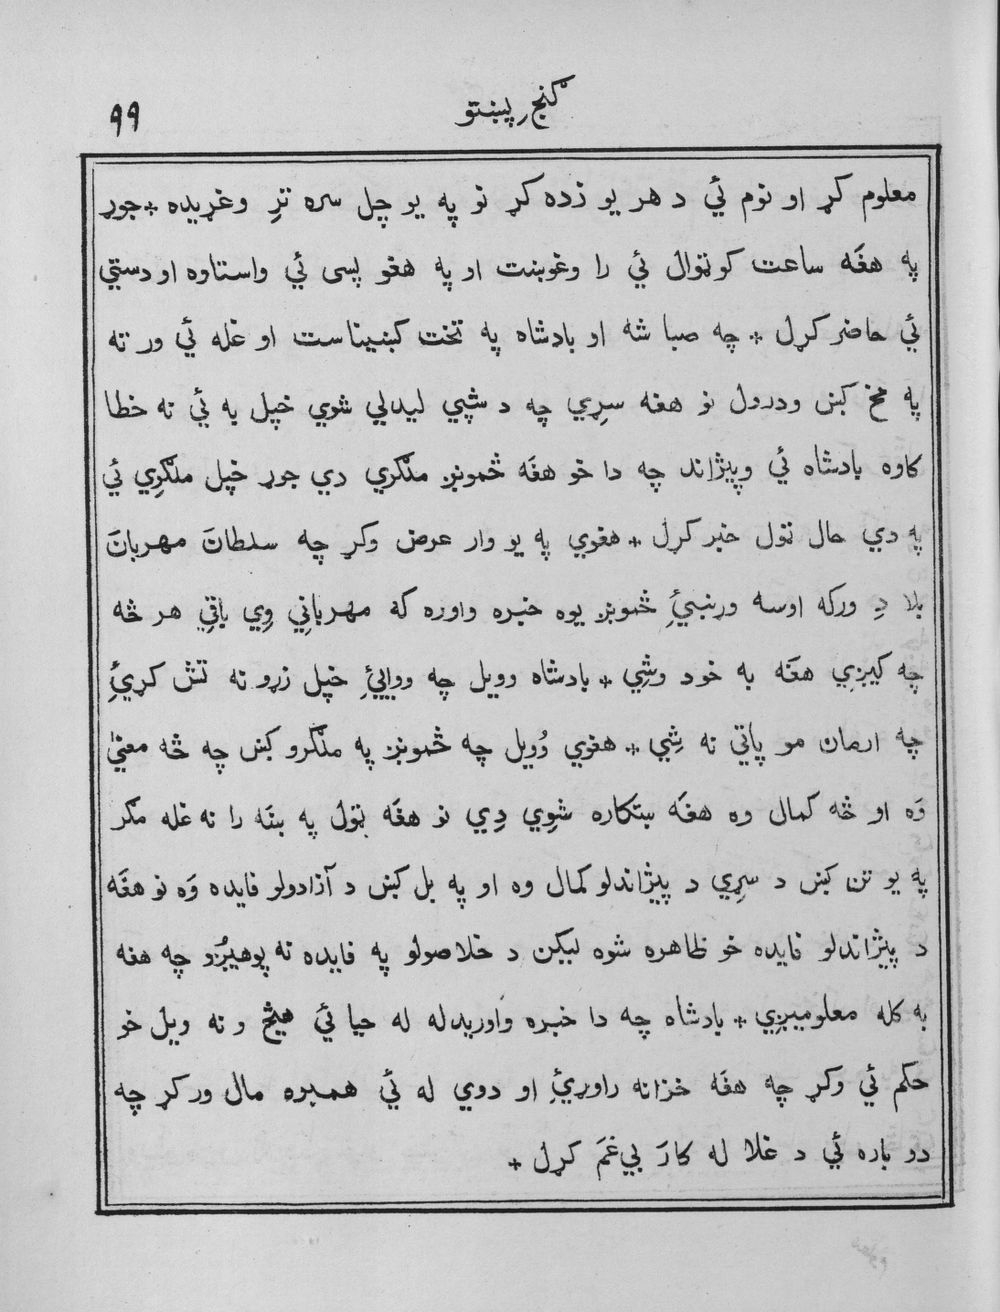 گنج پښتو
۹۹
معلوم کړ او نوم ئي د هر يو زده کړ نو په يو چل سره ترِ وغړيده * جوړ
په هغَه ساعت کوټوال ئي را وغوښت او په هغو پسی ئي واستاوه او دستي
ئي حاضر کړل * چه صبا شه او بادشاه په تخت کښيناست او غله ئي ور ته
په مخ کښ ودرول نو هغه سړي چه د شپي ليدلي شوي خپل به ئي نه خطا
کاوه بادشاه ئي وپيژاند چه دا خو هغَه څمونږ ملګري دي جوړ خپل ملګري ئي
په دي حال ټول خبر کړل * هغوي په يو وار عرض وکړ چه سلطانَ مهربانَ
بلا دِ ورکه اوسه ورښيئِ څمونږ يوه خبره واوره که مهرباني وِي باقي هر څه
چه کيږي هغَه به خود وشِي * بادشاه وويل چه ووايئِ خپل زړونه تش کړيئِ
چه ارمان مو پاتي نه شِي * هغوي وُويل چه څمونږ په ملګرو کښ چه څه معنیٰ
وَه او څه کمال وه هغَه ښکاره شوِي دِي نو هغَه ټول په ښَه را نه غله مګر
په يو تن کښ د سړي د پيژاندلو کمال وه او په بل کښ د آزادولو فايده وَه نو هغَه
د پيژاندلو فايده خو ظاهره شوه ليکن د خلاصولو په فايده نه پوهيږُو چه هغه
به کله معلوميږي * بادشاه چه دا خبره واوريدله له حيا ئي هيڅ و نه ويل خو
حکم ئي وکړ چه هغَه خزانه راوړئِ او دوي له ئي همبره مال ورکړ چه
دو باره ئي د غلا له کارَ بي غمَ کړل *